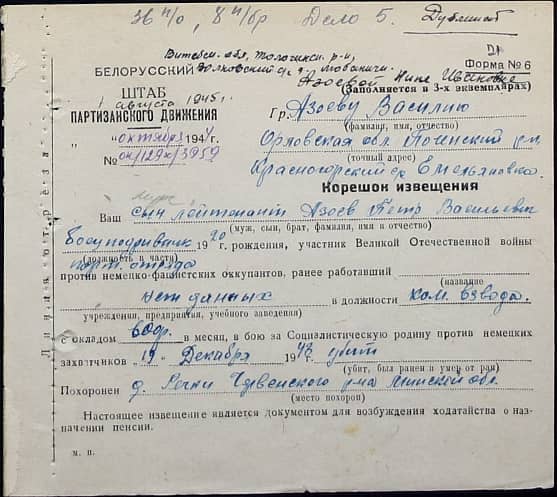 36 п/о, 8 п/бр Дело 5. Дубликат
Витебск. обл, Толочинск. р-н,
Волковский с/с д. Любаничи.
Форма № 6
БЕЛОРУССКИЙ
Азоевой Нине Ивановне
(Заполняется в 3-х экземплярах)
ШТАБ
1 августа 1945 г.
ПАРТИЗАНСКОГО ДВИЖЕНИЯ
Гр. Азоеву Василию
(фамилия, имя, отчество)
" октября 1944 г.
Орловская обл.
№ 3959
(точный адрес)
Красногорский с/с Емельяновка.
Корешок извещения
муж
Ваш сын лейтенант Азоев Петр Васильевич
(муж, сын, брат, фамилия, имя и отчество)
1920 г. рождения, участник Великой Отечественной войны
(должность в части)
парт. отряда
против немецко-фашистских оккупантов, ранее работавший
(название
нет данных в должности ком. взвода.
учреждения, предприятия, учебного заведения)
с окладом в месяц, в бою за Социалистическую родину против немецких
захватчиков 19 " Декабря 1943 убит
(убит, был ранен и умер от ран)
Похоронен д. Речки Червенского р-на Минской обл.
(место похорон)
Настоящее извещение является документом для возбуждения ходатайства о назначении пенсии.
м. п.
Линия отреза